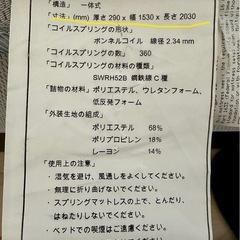 「構造」 一体式
「寸法」(mm) 厚さ290x 幅1530x 長さ2030
「コイルスプリングの形状」
ボンネルコイル 線径 2.34 mm
「コイルスプリングの数」 360
「コイルスプリングの材料の種類」
SWRH52B 鋼鉄線C種
「詰物の材料」ポリエステル、ウレタンフォーム、
低反発フォーム
「外装生地の組成」
ポリエステル 68%
ポリプロピレン 18%
レーヨン 14%
「使用上の注意」
・湿気を避け、風通しをよくしてください。
・無理に折り曲げないでください。
・スプリングマットレスの上で、とんだり、
はねたりしないでください。
・ベッドでの喫煙はご遠慮ください。